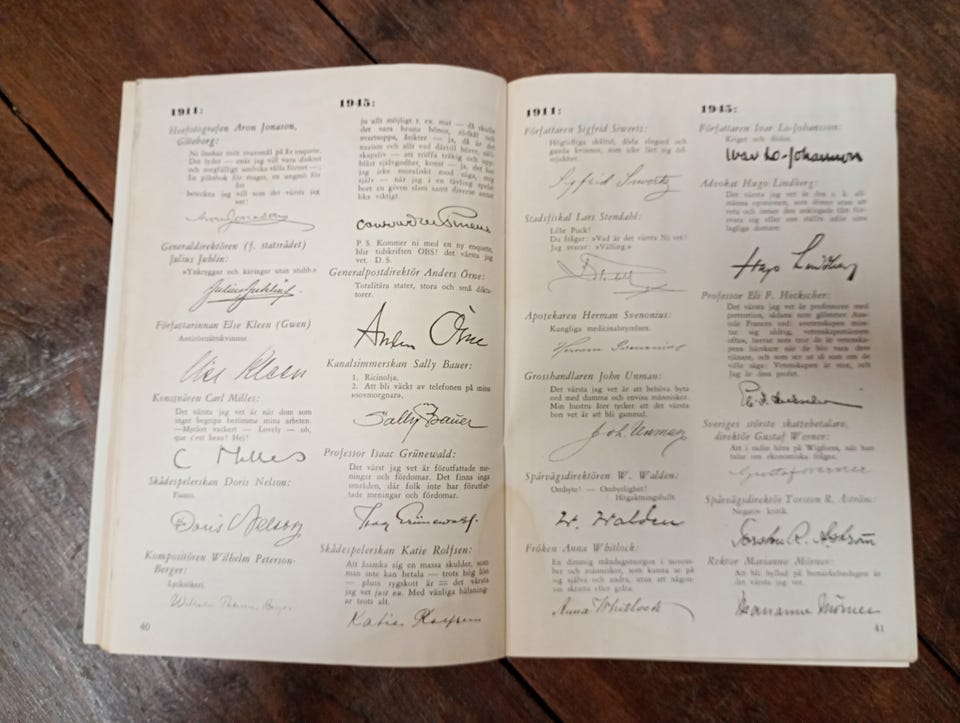 1911:
Hovfotografen Aron Jonason,
Göteborg:
Ni önskar mitt svarsmål på Er enquete.
Det lyder — enär jag vill vara diskret
och omfångsligt
En pilsnbok för mager, en ungmö för
fet
beteckna jag vill som det värsta jag
vet!
Aron Jonason
Generaldirektören (f. statsrådet)
Julius Juhlin:
»Ynkryggar och käringar utan stubb.»
Julius Juhlin.
Författarinnan Else Kleen (Gwen)
Antirösträttskvinnor.
Else Kleen
Konstnären Carl Milles:
Det värsta jag vet är när dom som
inget begripa berömma mina arbeten.
—Mycket vackert — Lovely — oh,
que c'est beau! Hej!
C Milles
Skådespelerskan Doris Nelson:
Doris Nelson
Kompositören Wilhelm Peterson-
Berger:
Wilhelm Peterson-Berger
40
1945:
ju allt möjligt t. ex. mat — då skulle
det vara bruna bönor, rödkål och
svartsoppa, åsikter — ja, då är det
nazism och allt vad därtill hörer, säll-
skapsliv — att träffa tråkig och upp-
blåst självgodhet, konst — ja, det har
jag icke moraliskt mod säga, mig
själv — när jag i en tävling spelat
bort en given slam samt diverse annat
lika viktigt.
P. S. Kommer ni med en ny enquete,
blir tidskriften OBS! det värsta jag
vet. D. S.
Generalpostdirektör Anders Örne:
Totalitära stater, stora och små dikta-
torer.
Anders Örne
Kanalsimmerskan Sally Bauer:
1. Ricinolja.
2. Att bli väckt av telefonen på mina
»sovmorgnar».
Sally Bauer
Professor Isaac Grünewald:
Det värst jag vet är förutfattade me-
ningar och fördomar. Det finns inga
områden, där folk inte har förutfat-
tade meningar och fördomar.
Isaac Grünewald.
Skådespelerskan Katie Rolfsen:
Att åsamka sig en massa skulder, som
man inte kan betala — trots hög lön
— pluss ryggskott är == det värsta
jag vet just nu. Med vänliga hälsning-
ar trots allt.
Katie Rolfsen
1911:
Författaren Sigfrid Siwertz:
Högtidliga skåltal, döda slagord och
gamla kvinnor, som icke lärt sig öd-
mjukhet.
Sigfrid Siwertz
Stadsfiskal Lars Stendahl:
Lille Puck!
Du frågar: »Vad är det värsta Ni vet?
Jag svarar: »Välling.»
Apotekaren Herman Svenonius:
Kungliga medicinalstyrelsen.
Herman Svenonius
Grosshandlaren John Unman:
Det värsta jag vet är att behöva byta
ord med dumma och envisa människor.
Min hustru åter tycker att det värsta
hon vet är att bli gammal.
Joh. Unman
Spårvägsdirektören W. Walden:
Ombyte! — Ombytlighet!
Högaktningsfullt
W. Walden
Fröken Anna Whitlock:
En dimmig måndagsmorgon i novem-
ber och människor, som kunna se på
sig själva och andra, utan att någon-
sin skratta eller gråta.
Anna Whitlock
1945:
Författaren Ivar Lo-Johansson:
Kriget och döden.
Ivar Lo-Johansson
Advokat Hugo Lindberg:
Det värsta jag vet är den s. k. all-
männa opinionen, som dömer utan att
veta och innan den anklagade fått för-
svara sig eller ens ställts inför sina
lagliga domare.
Hugo Lindberg
Professor Eli F. Heckscher:
Det värsta jag vet är professorer med
pretention, sådana som glömmer Ana-
tole Frances ord: svenskapen misstar
sig aldrig, vetenskapsmännen
oftare, barrar som tror de är vetenska-
pens härskare när de bör vara dess
tjänare, och som ser ut så som om de
ville säga: Vetenskapen är stor, och
Jag är dess profet.
Eli F. Heckscher
Sveriges störste skattebetalare,
direktör Gustaf Werner:
Att i radio höra på Wigforss, när han
talar om ekonomiska frågor.
Gustaf Werner
Spårvägsdirektör Torsten R. Åström:
Negativ kritik.
Torsten R. Åström
Rektor Marianne Mörner:
Att bli hyllad på bemärkelsedagen är
det värsta jag vet.
Marianne Mörner
41